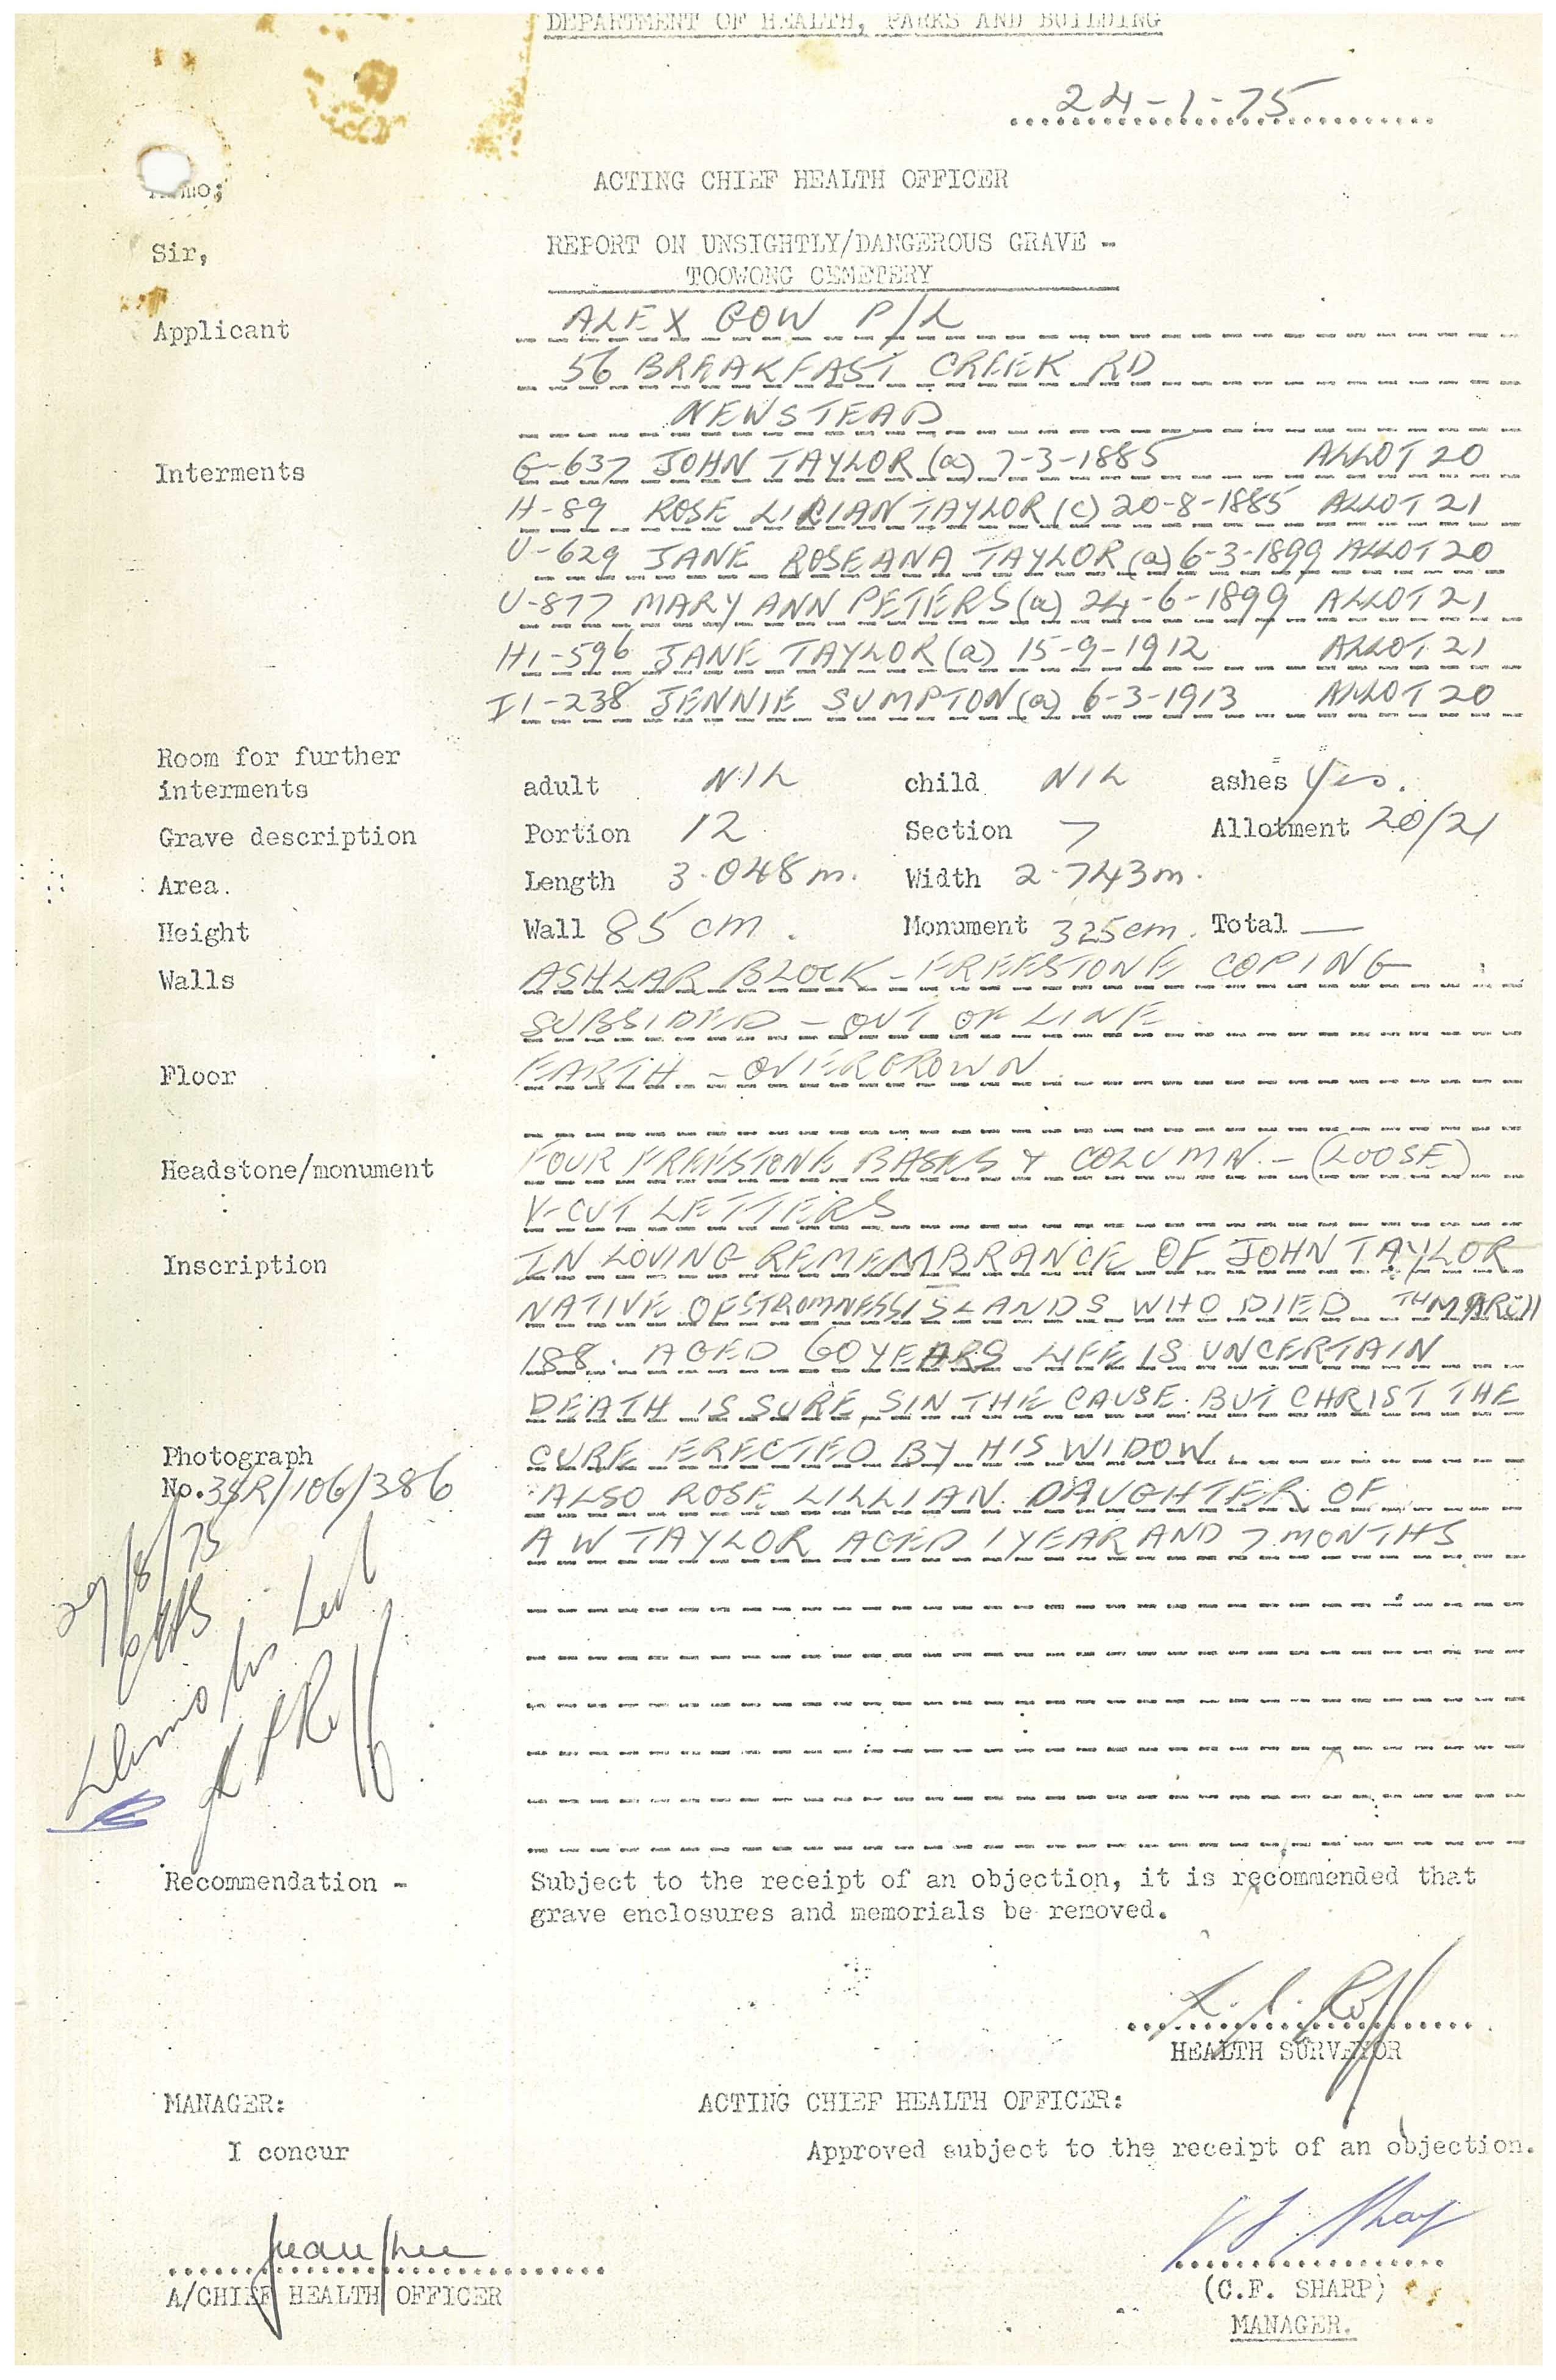 DEPARTMENT OF HEALTH, PARKS AND BUILDING
24-1-75
ACTING CHIEF HEALTH OFFICER
Sir,
REPORT ON UNSIGHTLY/DANGEROUS GRAVE -
TOOWONG CEMETERY
Applicant ALEX GOW P/L
56 BREAKFAST CREEK RD
NEWSTEAD
Interments G-637 JOHN TAYLOR (a) 7-3-1885 ALLOT 20
H-89 ROSE LILIAN TAYLOR (c) 20-8-1885 ALLOT 21
U-629 JANE ROSEANA TAYLOR (a) 6-3-1899 ALLOT 20
U-877 MARY ANN PETERS (a) 24-6-1899 ALLOT 21
H1-596 JANE TAYLOR (a) 15-9-1912 ALLOT 21
I1-238 JENNIE SUMPTON (a) 6-3-1913 ALLOT 20
Room for further
interments adult NIL child NIL ashes Yes.
Grave description Portion 12 Section 7 Allotment 20/21
Area. Length 3.048m. Width 2.743m.
Height Wall 85 cm. Monument 325cm. Total —
Walls ASHLAR BLOCK - FREESTONE COPING
SUBSIDED - OUT OF LINE.
Floor EARTH - OVERGROWN.
Headstone/monument FOUR FREESTONE BASES & COLUMN. - (LOOSE)
V-CUT LETTERS
Inscription IN LOVING REMEMBRANCE OF JOHN TAYLOR
NATIVE OF STROMNESS ISLANDS WHO DIED TH MARCH
188. AGED 60 YEARS LIFE IS UNCERTAIN
DEATH IS SURE, SIN THE CAUSE. BUT CHRIST THE
Photograph CURE ERECTED BY HIS WIDOW.
No. 38R/106/386 ALSO ROSE LILLIAN DAUGHTER OF
A W TAYLOR AGED 1 YEAR AND 7 MONTHS
29/8/75
Recommendation - Subject to the receipt of an objection, it is recommended that
grave enclosures and memorials be removed.
HEALTH SURVEYOR
MANAGER: ACTING CHIEF HEALTH OFFICER:
I concur Approved subject to the receipt of an objection.
A/CHIEF HEALTH OFFICER (C.F. SHARP)
MANAGER.